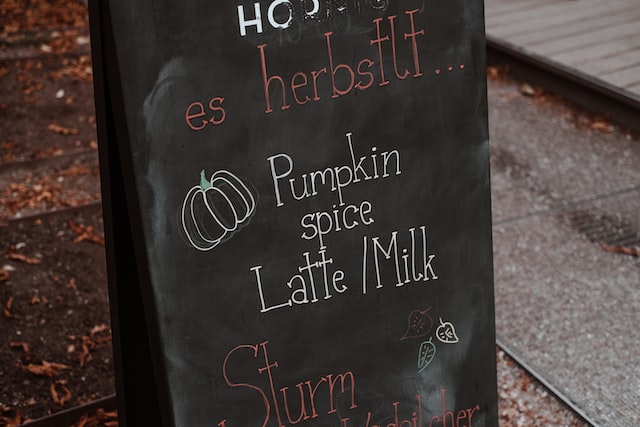 es herbstlt...
Pumpkin
spice
Latte / Milk
Sturm